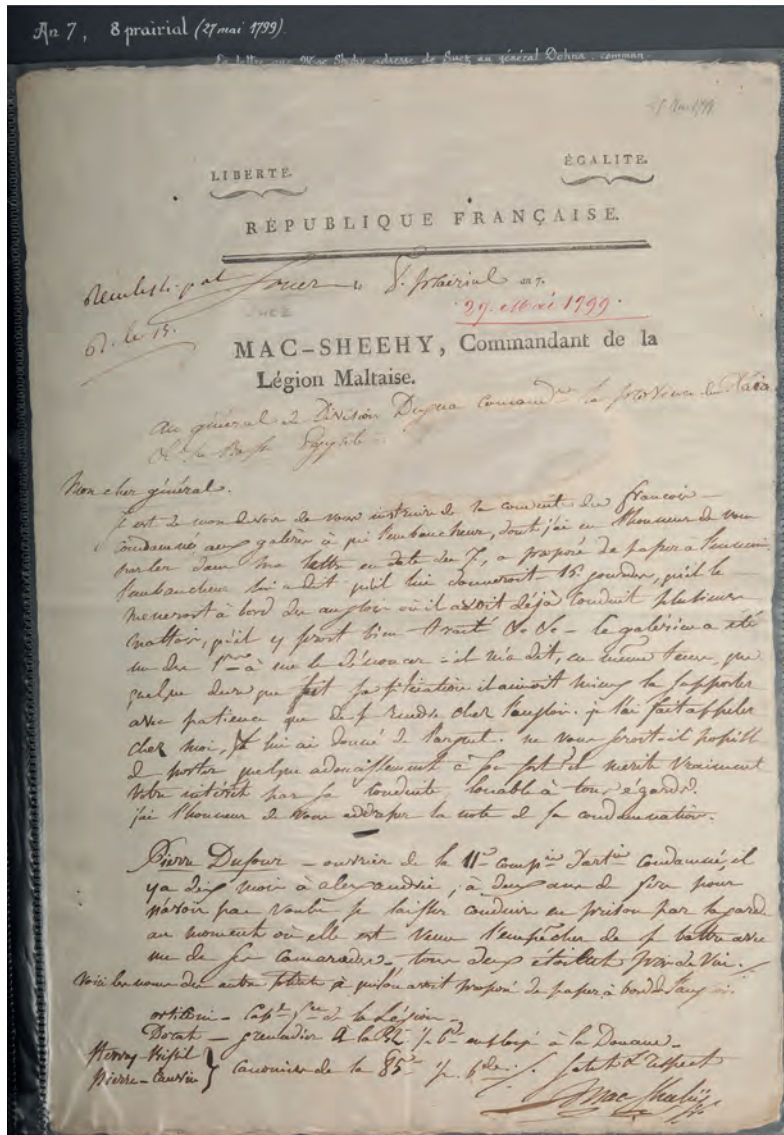 An 7, 8 prairial (27 mai 1799).
La lettre que Mac Shehy adresse de Suez au général
LIBERTÉ. ÉGALITÉ.
RÉPUBLIQUE FRANÇAISE.
Suez le 8. prairial an 7.
SUEZ
27. Mai 1799.
le 15.
MAC-SHEEHY, Commandant de la
Légion Maltaise.
Au général de Division Dugua la province du
de la Basse Egypte
Mon cher général.
Il est de mon devoir de vous instruire de la conduite du francois
condamné aux galères à qui l'embaucheur, dont j'ai eu l'honneur de vous
parler dans ma lettre en date du 7, a proposé de passer à l'ennemi.
l'embaucheur lui a dit qu'il lui donneroit 15 gourdes, qu'il le
meneroit à bord des anglois où il avoit déjà conduit plusieurs
mattois, qu'il y seroit bien traité &c. &c. - le galérien a été
un des à me le dénoncer - il m'a dit, en même tems, que
quelque dure que fut sa situation il aimoit mieux la supporter
avec patience que de se rendre chez l'anglois. je l'ai fait appeler
chez moi, et lui ai donné de l'argent. ne vous seroit-il possible
de porter quelque adoucissement à son sort? il mérite vraiment
votre intérêt par sa conduite, louable à tous égards.
j'ai l'honneur de vous addresser la note de sa condamnation.
Pierre Dufour - ouvrier de la 11e comp.ie d'art.ie condamné, il
y a dix mois à alexandrie, à deux ans de fers pour
n'avoir pas voulu se laisser conduire en prison par la garde
au moment où elle est venue l'empêcher de se battre avec
un de ses camarades - tous deux étoient pris de vin.
Voici les noms des autres à qui l'on avoit proposé de passer à bord de l'anglois.
- Cap.l de la Légion -
Dorat - grenadier à la employé à la Douane -
Pierre canonier de la 85e
Salut et respect
Mac Sheehy